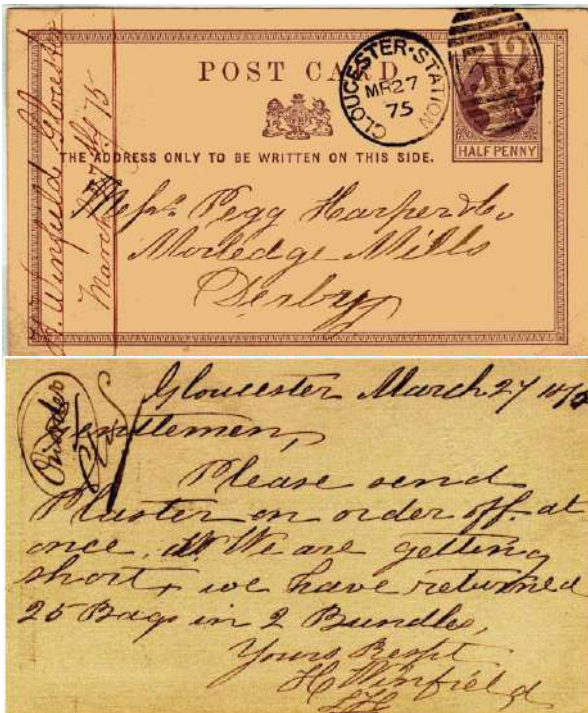 H. Winfield Gloucester
March 27th / 75
POST CARD
GLOUCESTER · STATION
MR 27
75
HALF PENNY
THE ADDRESS ONLY TO BE WRITTEN ON THIS SIDE.
Messrs. Pegg Harper & Co
Morledge Mills
Derby
Gloucester March 27 1875
Gentlemen,
Please send
Plaster on order off at
once, We are getting
short, & we have returned
25 Bags in 2 Bundles,
Yours Respt
H Winfield